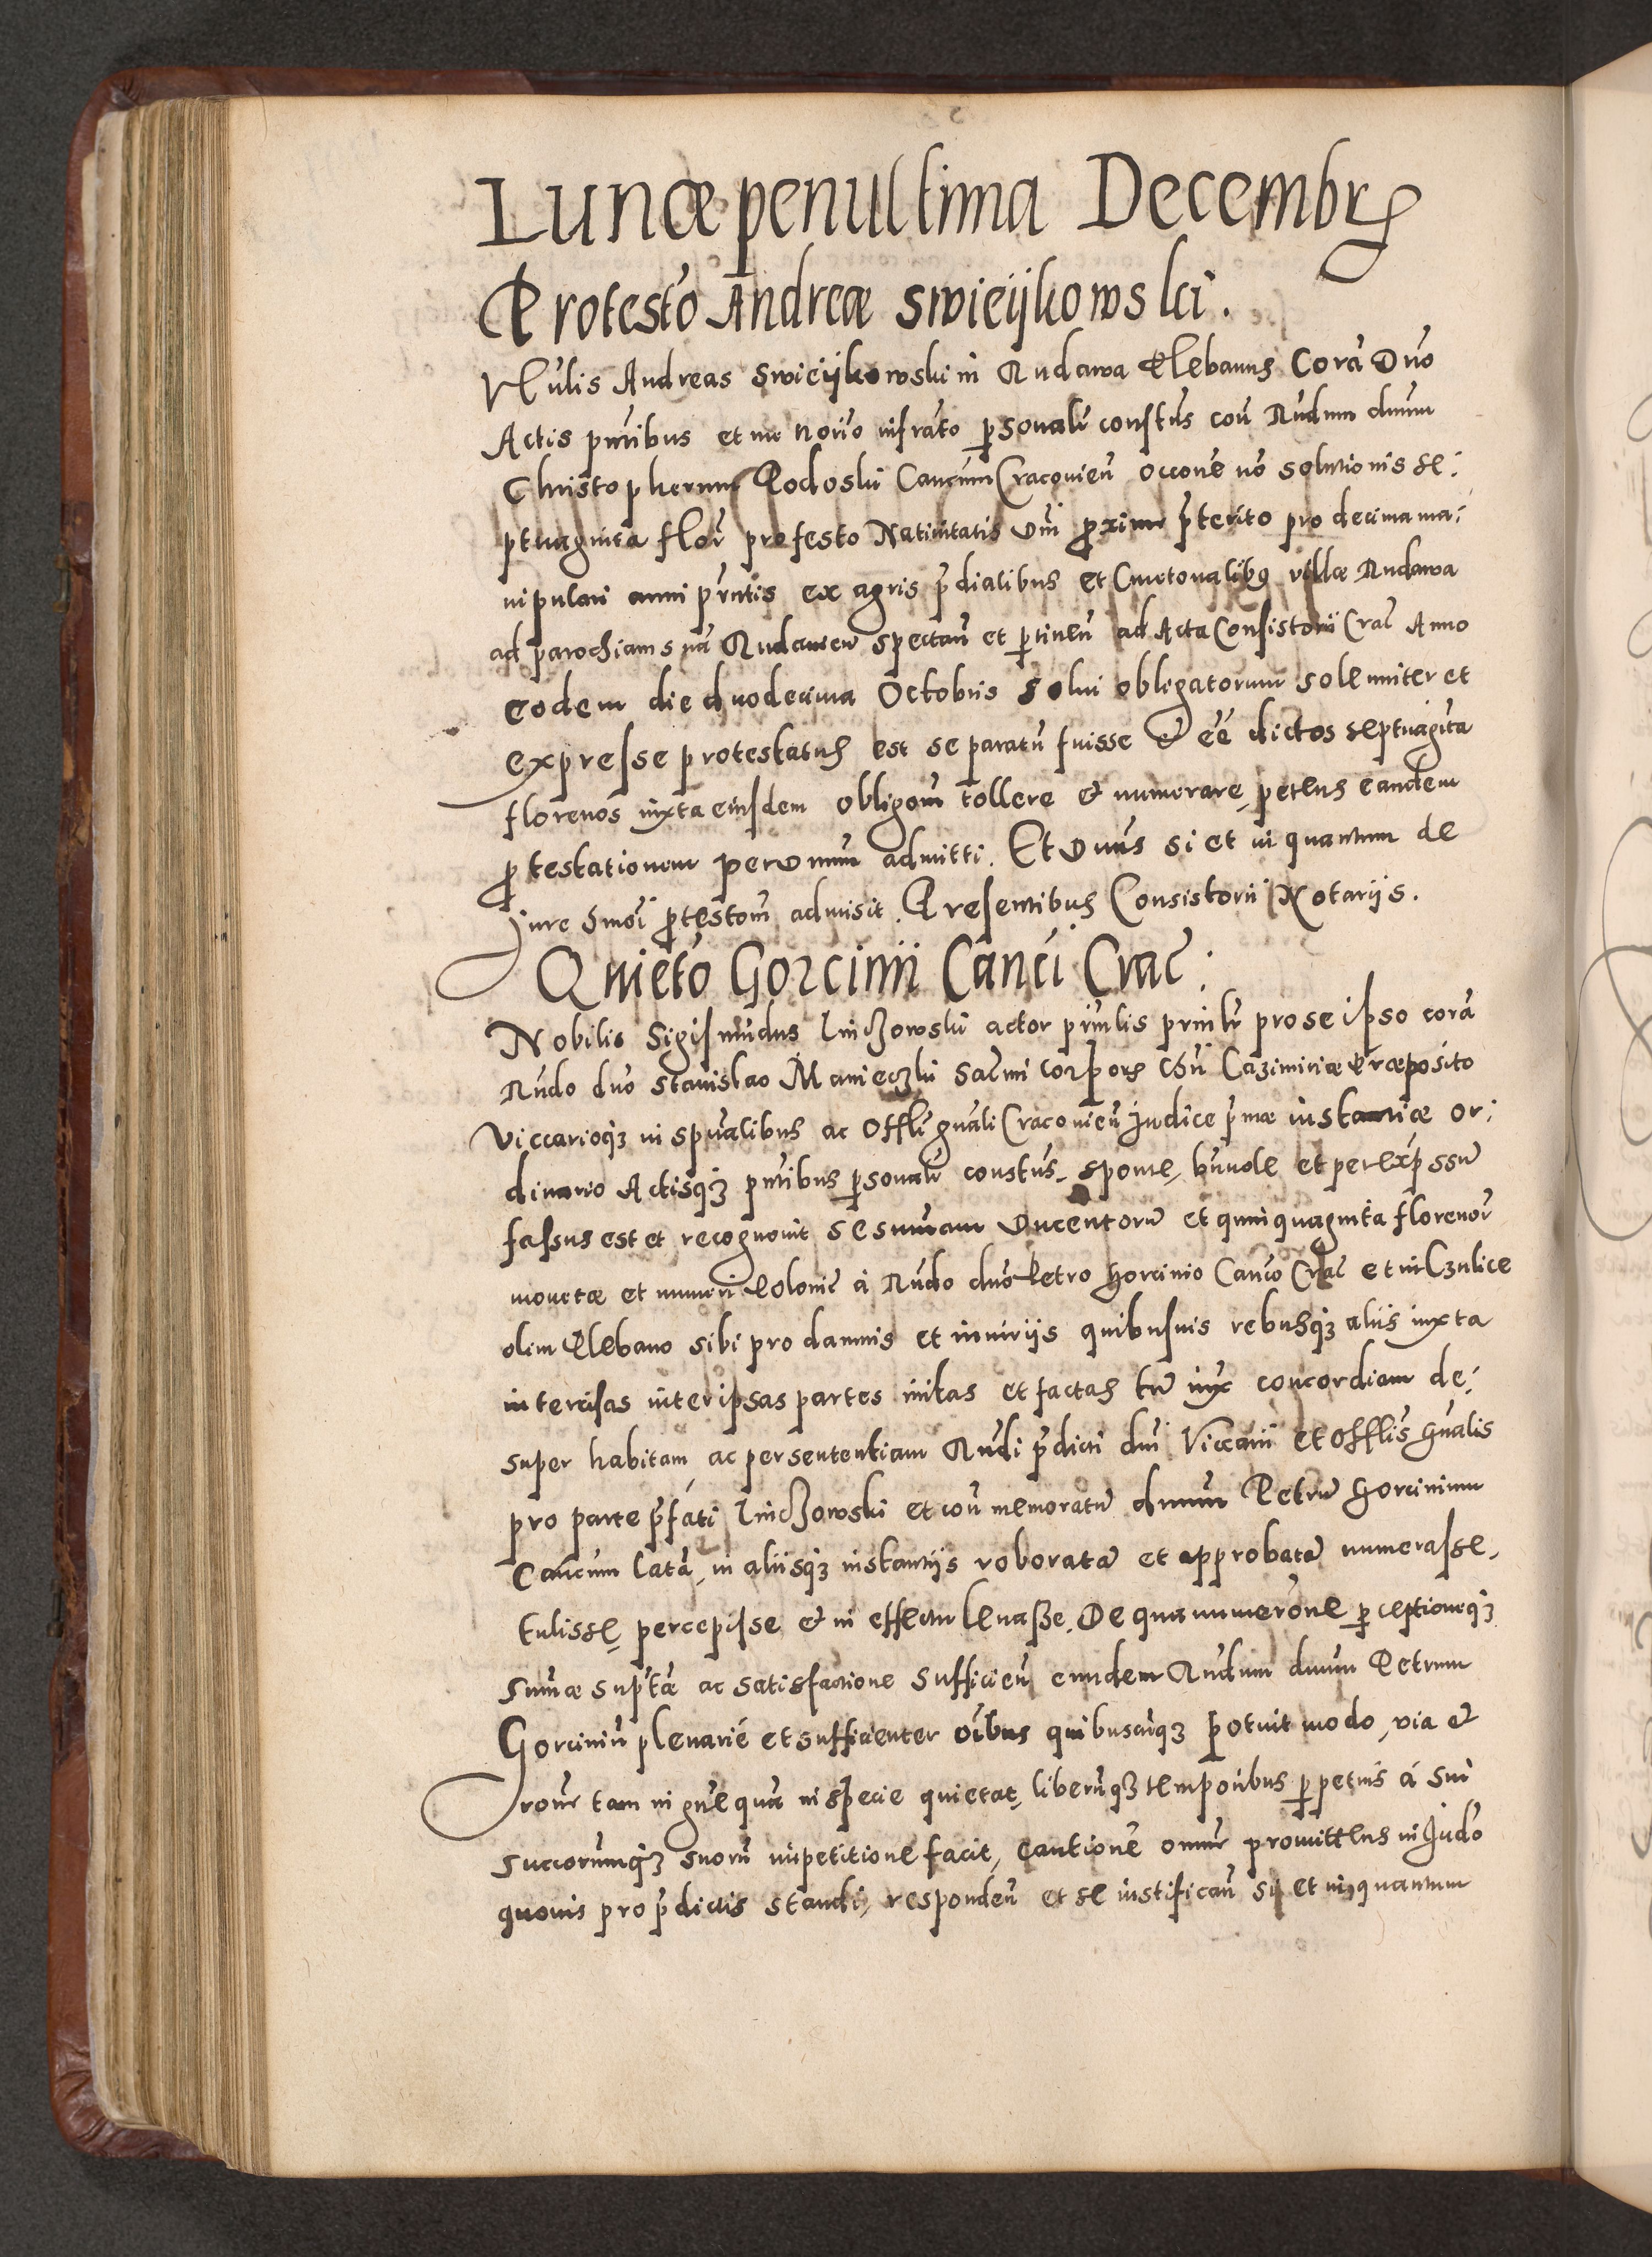 Lunæ penultima Decembr
Protesto Andreæ Swieijkowski.
Nulis Andreas Swieijkowski in Rudawa Plebanus Corā Dño
Actis pntibus et me Norio infrato psonalr constus con Rndum dnum
Christopherum Rodoski Cancum Cracovien occone no solutionis se:
ptuaginta flor pro festo Nativitatis Dni proxime pterito pro decima ma:
nipulari anni prntis ex agris pdialibus et Cmetonalibq villæ Rudawa
ad parochiam suā Rudawen spectan et ptinen ad Acta Consistorii Crac Anno
eodem die duodecima Octobris solui obligatorum solenniter et
expresse protestatus est se paratū fuisse & eē dictos septuagīta
florenos iuxta eiusdem obligom tollere & numerare, petens eandem
protestationem per Dnum admitti. Et Dnus si et in quantum de
Jure hmoi protestom admisit. Presentibus Consistorii Notariis.
Quieto Gorcinii Canci Crac:
Nobilis Sigismūdus Linczowski actor prinlis prinlr pro se ipso corā
Rndo dno Stanislao Manieczki Sacmi corporis Chri Cazimiriæ Præposito
Viccarioqз in spualibus ac Offli gnali Cracovien Judice pmæ instantiæ or:
dinario Actisqз pntibus psonalr constus, sponte, bnuole et per expssū
fassus est et recognovit se sumam ducentorū et quinquaginta florenor
monetæ et numeri Polonic á Rndo dno Petro Gorcinio Canco Crac et in Czulice
olim Plebano sibi pro damnis et iniuriis quibusuis rebusqз aliis iuxta
intercisas inter ipsas partes initas et factas tū iux concordiam de:
super habitam ac per sententiam Rndi pdicti dni Viccarii et Offlis gnalis
pro parte pfati Linczowski et con memoratū dnum Petrū Gorcinium
Cancum latā, in aliisqз instantiis roboratā et approbatā numerasse,
tulisse, percepisse & in effectu leuasse. De qua numerōne pceptioneqз
sumæ suptæ ac satisfactione sufficien eundem Rndum dnum Petrum
Gorciniū plenarié et sufficienter oibus quibuscūqз potuit modo, via &
rone tam in gne quā in specie quietat, liberūqз temporibus ppetuis á sui
succorumqз suorū impetitione facit, cautione omnr promittens in Judo
quouis pro pdictis standi, responden et se iustifican si et in quantum